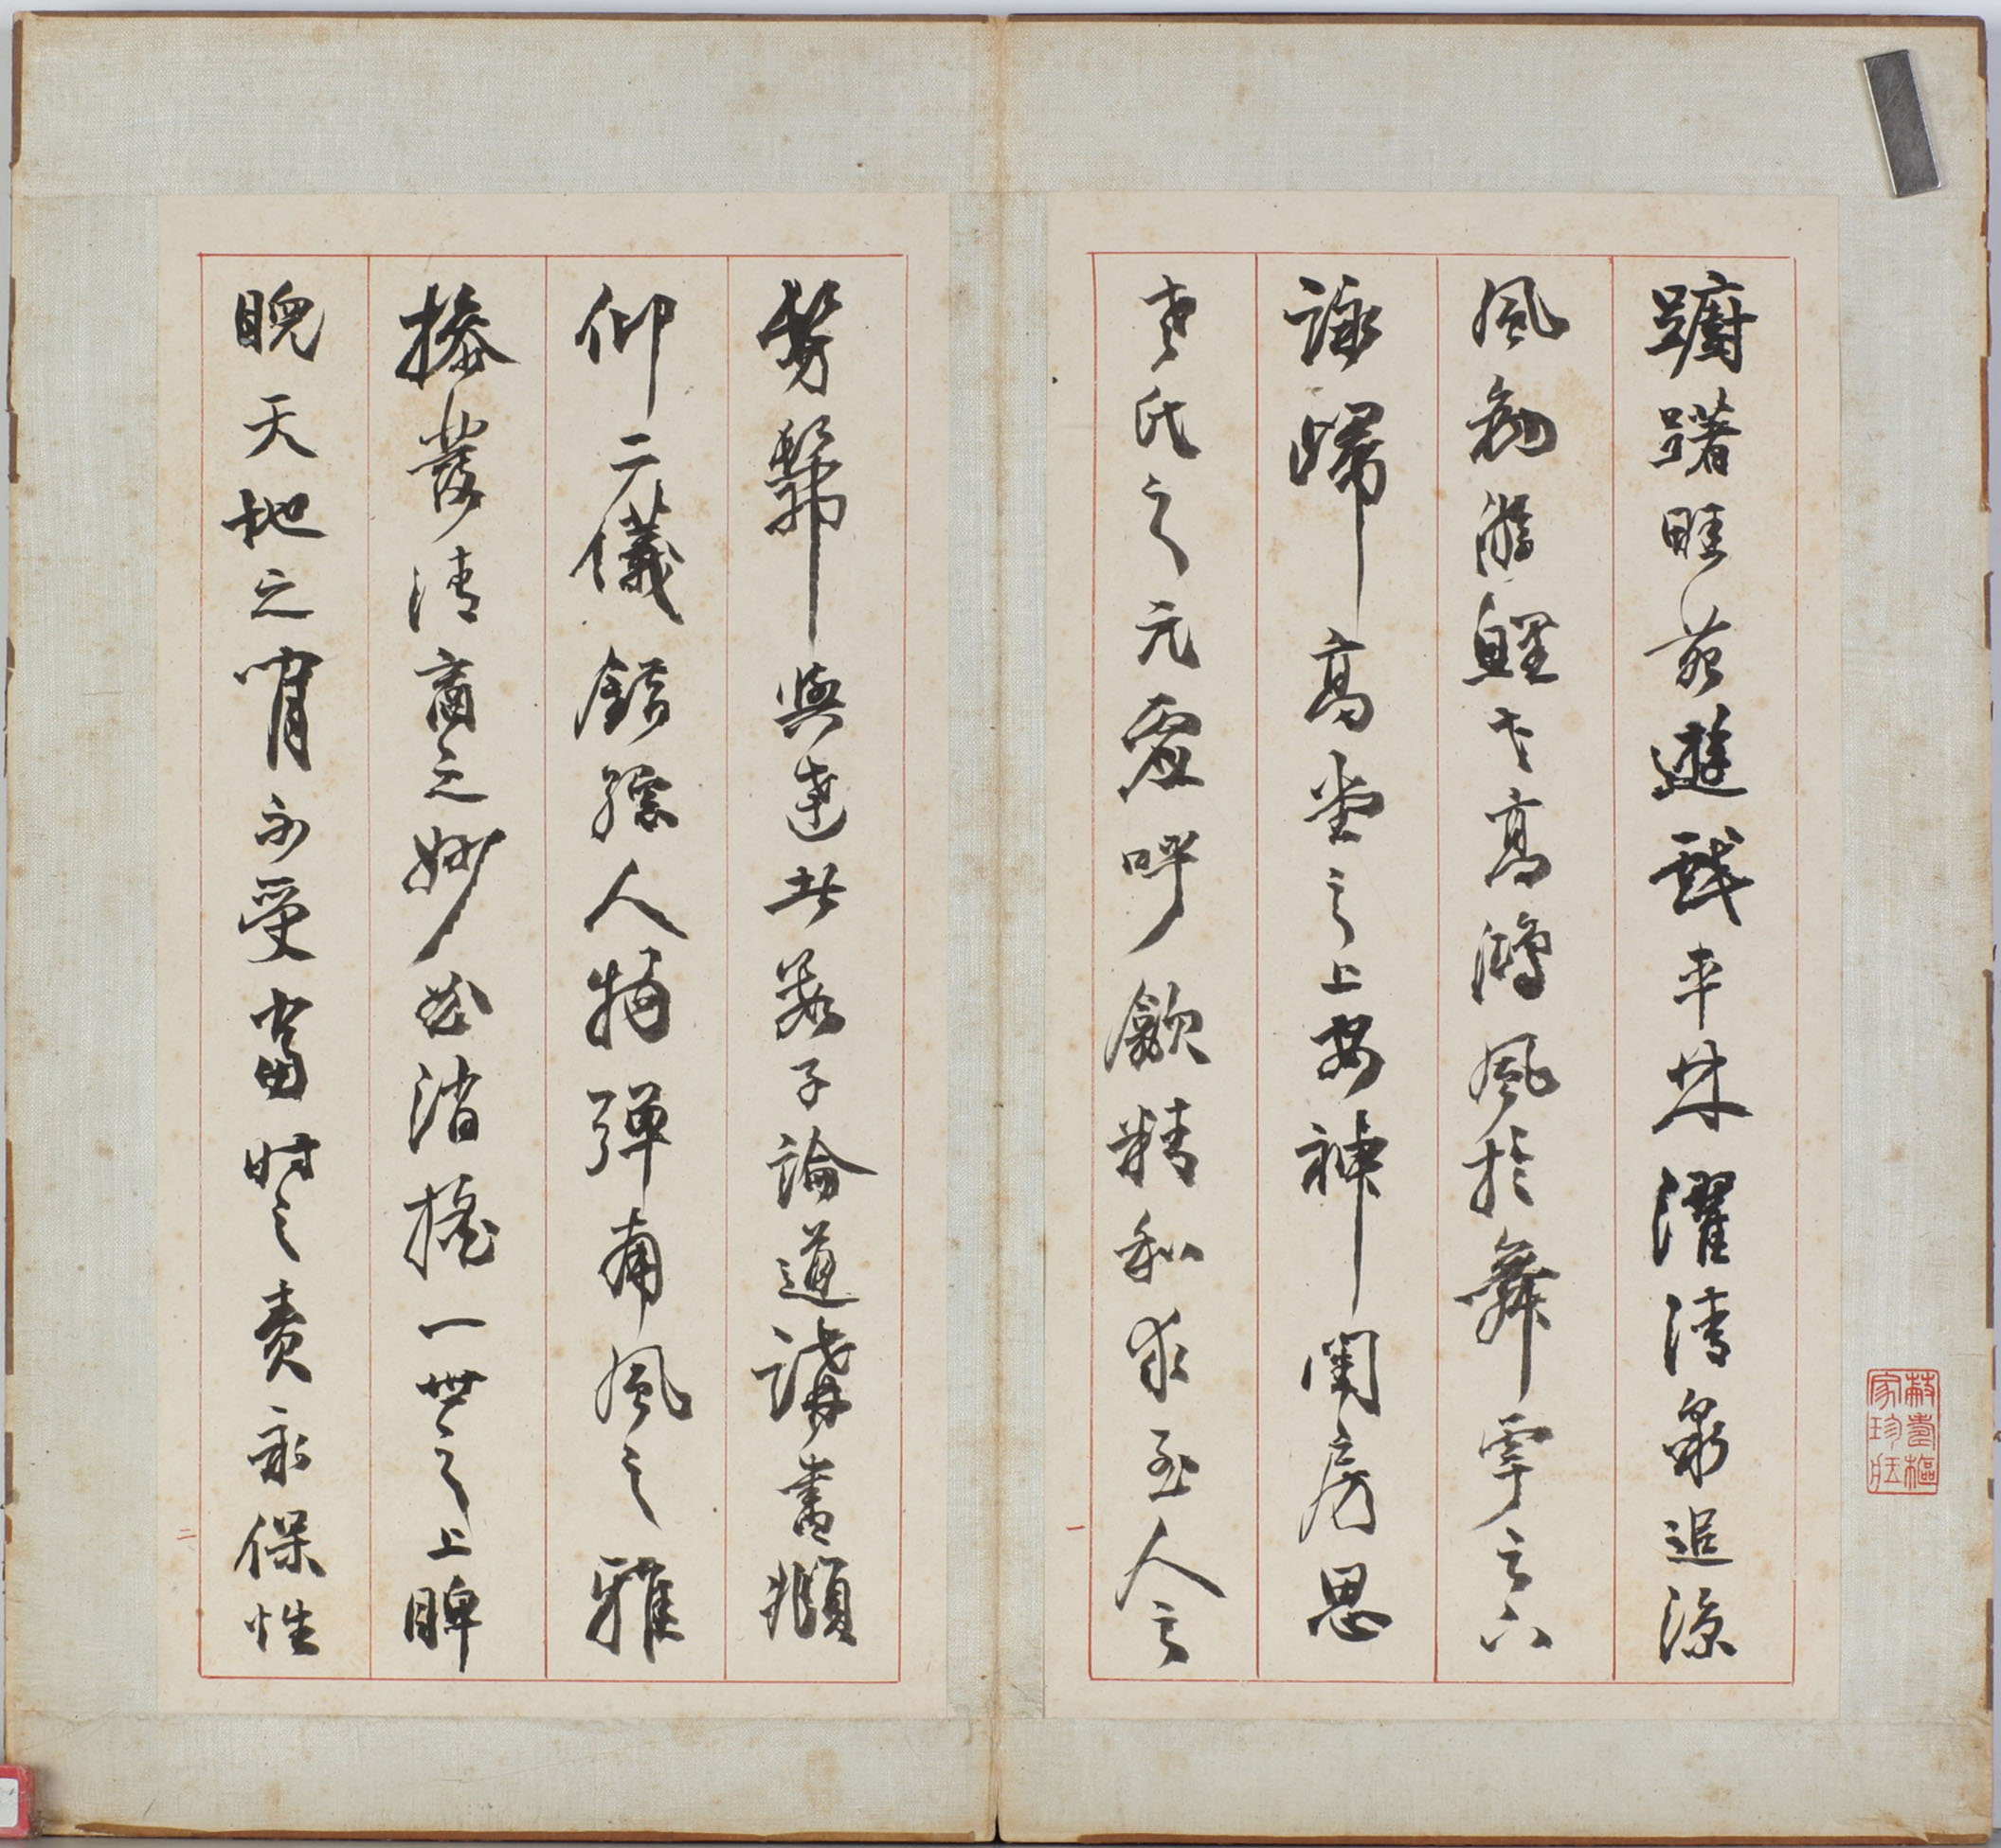 躕躇畦苑遊戲平林濯清泉追涼
風釣游鯉弋高鴻風於舞雩之下
詠歸高堂之上安神閨房思
老氏之元虛呼歙精和求至人之
一
髣髴與達者數子論道講書頫
仰二儀錯綜人物彈南風之雅
操發清商之妙曲消搖一世之上睥
睨天地之閒不受當時之責永保性
二